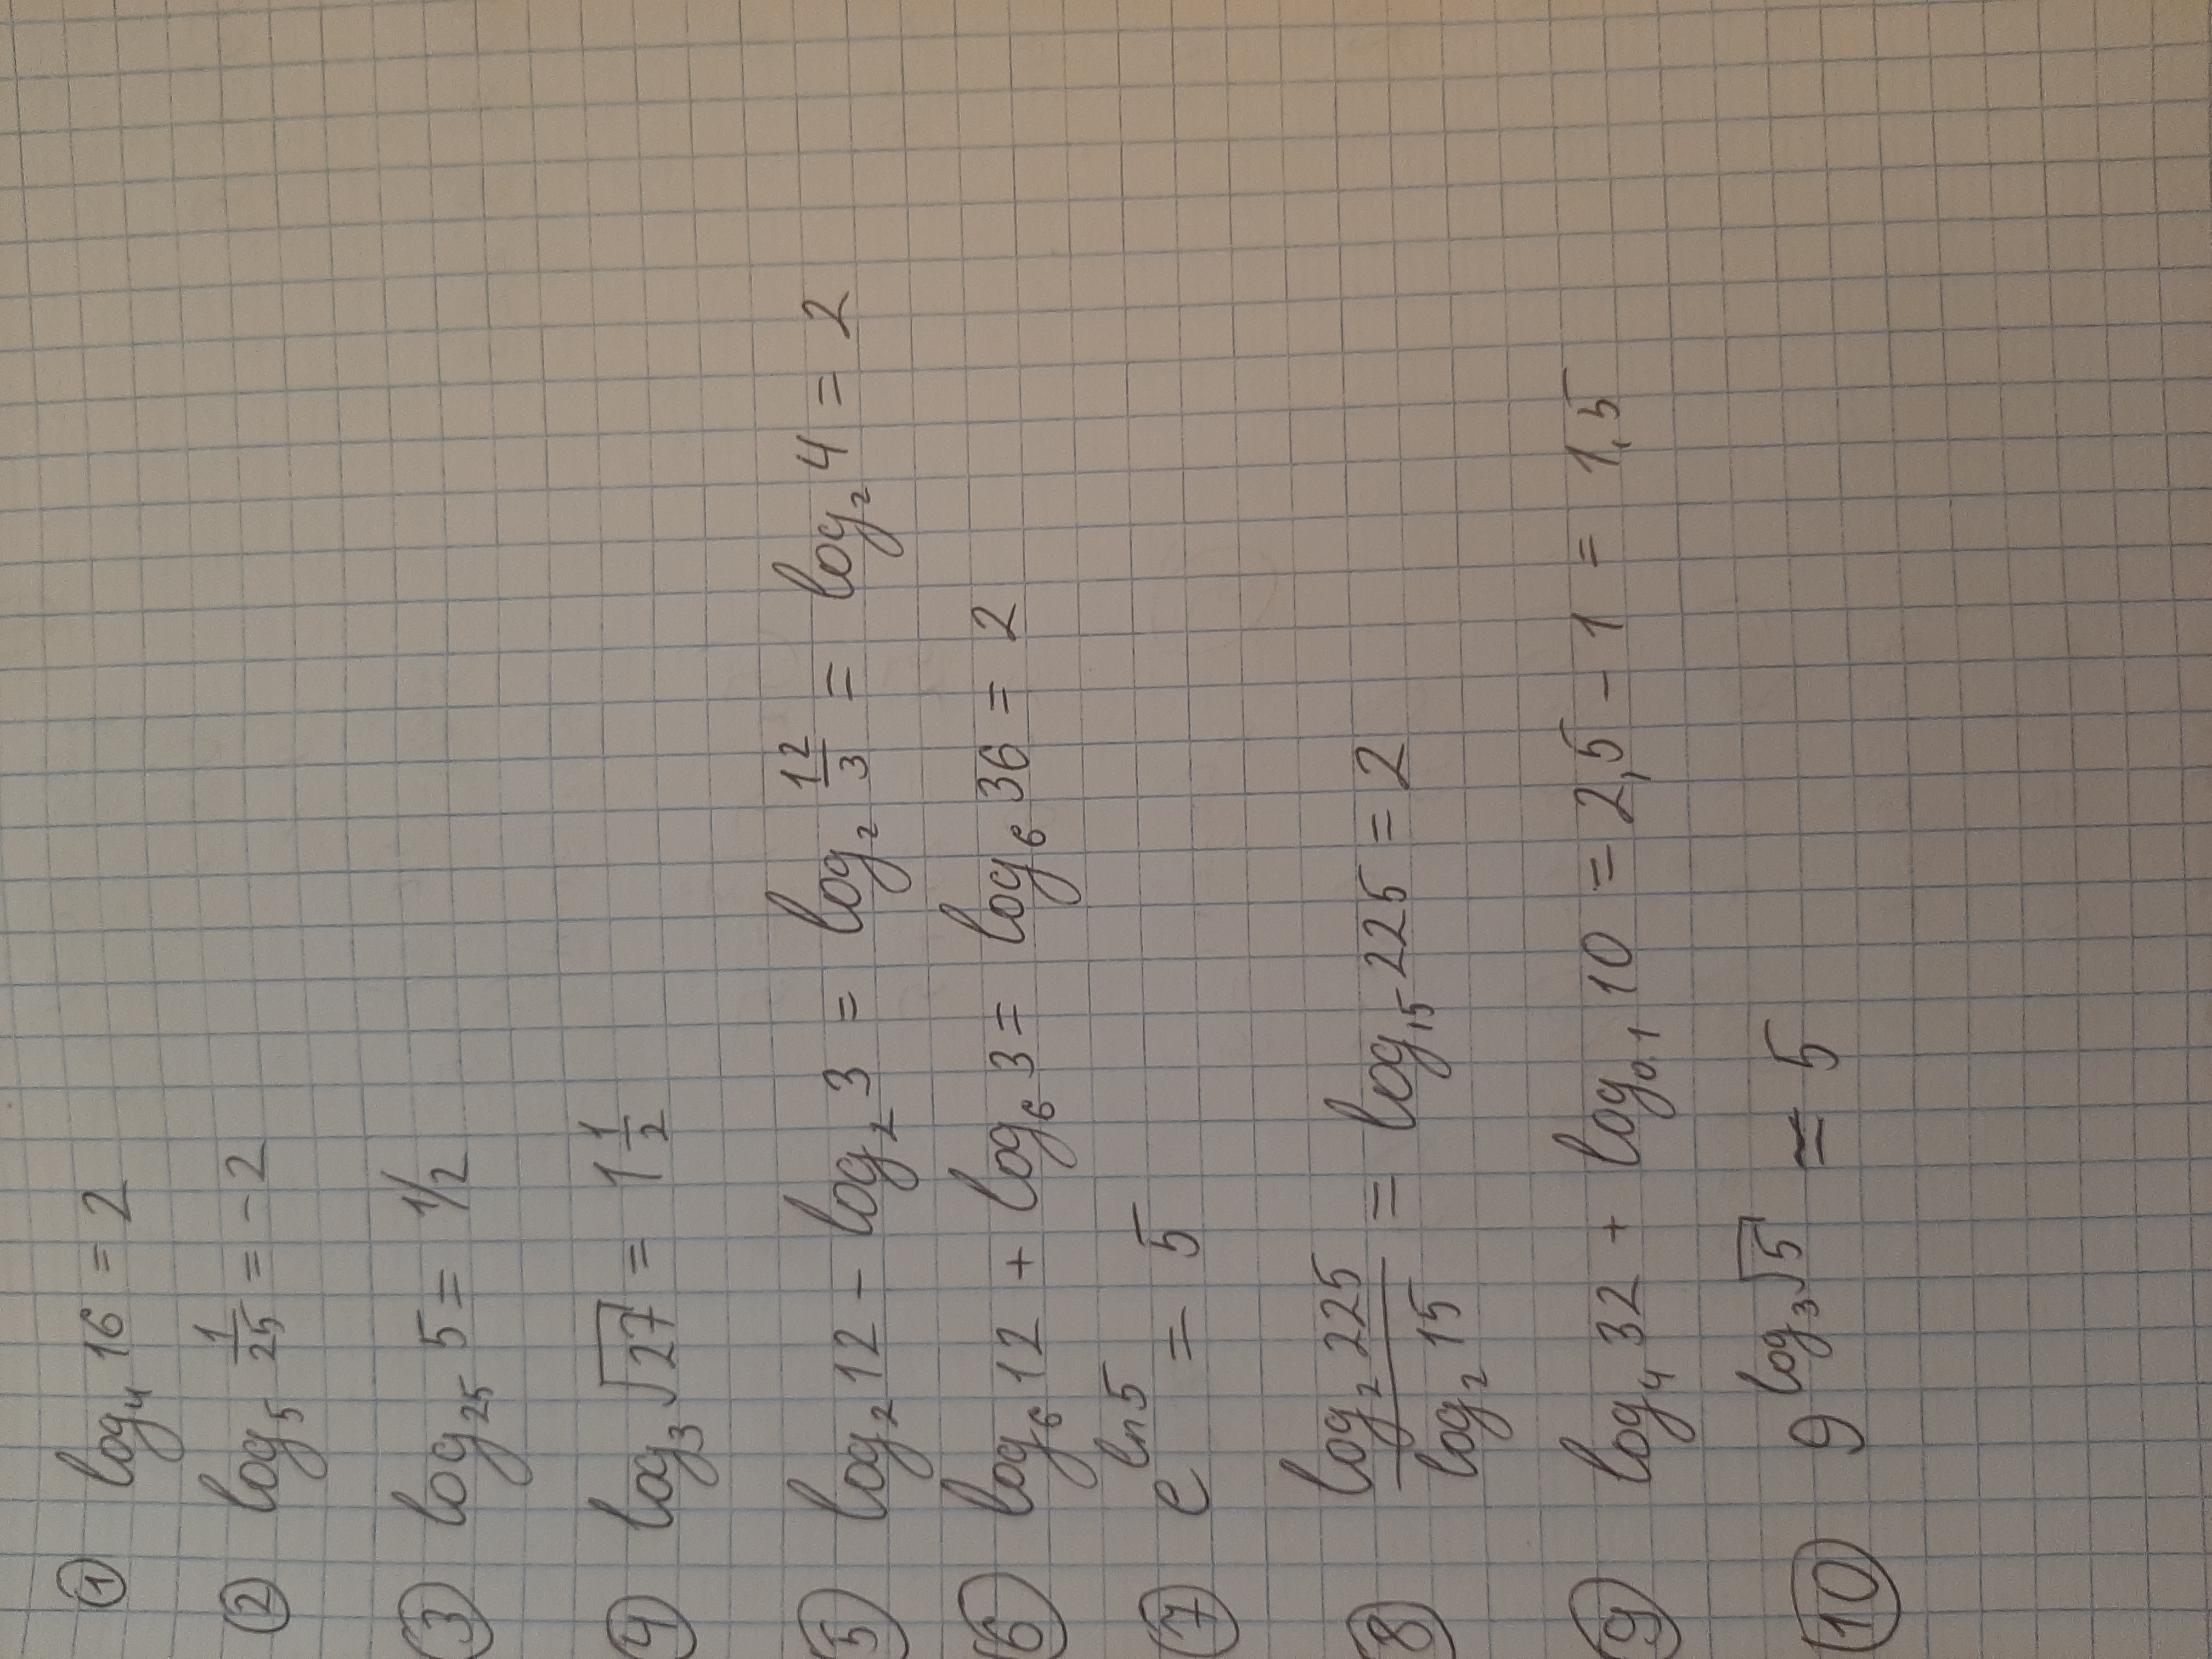 ① log₄ 16 = 2
② log₅ 1/25 = -2
③ log₂₅ 5 = 1/2
④ log₃ √27 = 1 1/2
⑤ log₂ 12 - log₂ 3 = log₂ 12/3 = log₂ 4 = 2
⑥ log₆ 12 + log₆ 3 = log₆ 36 = 2
⑦ e^(ln 5) = 5
⑧ (log₂ 225)/(log₂ 15) = log₁₅ 225 = 2
⑨ log₄ 32 + log₀.₁ 10 = 2,5 - 1 = 1,5
⑩ 9^(log₃ √5) = 5